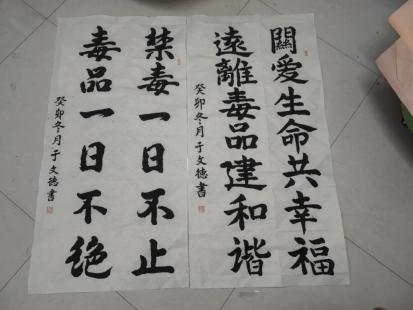 關爱生命共幸福
遠離毒品建和谐
癸卯冬月于文德書
禁毒一日不止
毒品一日不绝
癸卯冬月于文德書